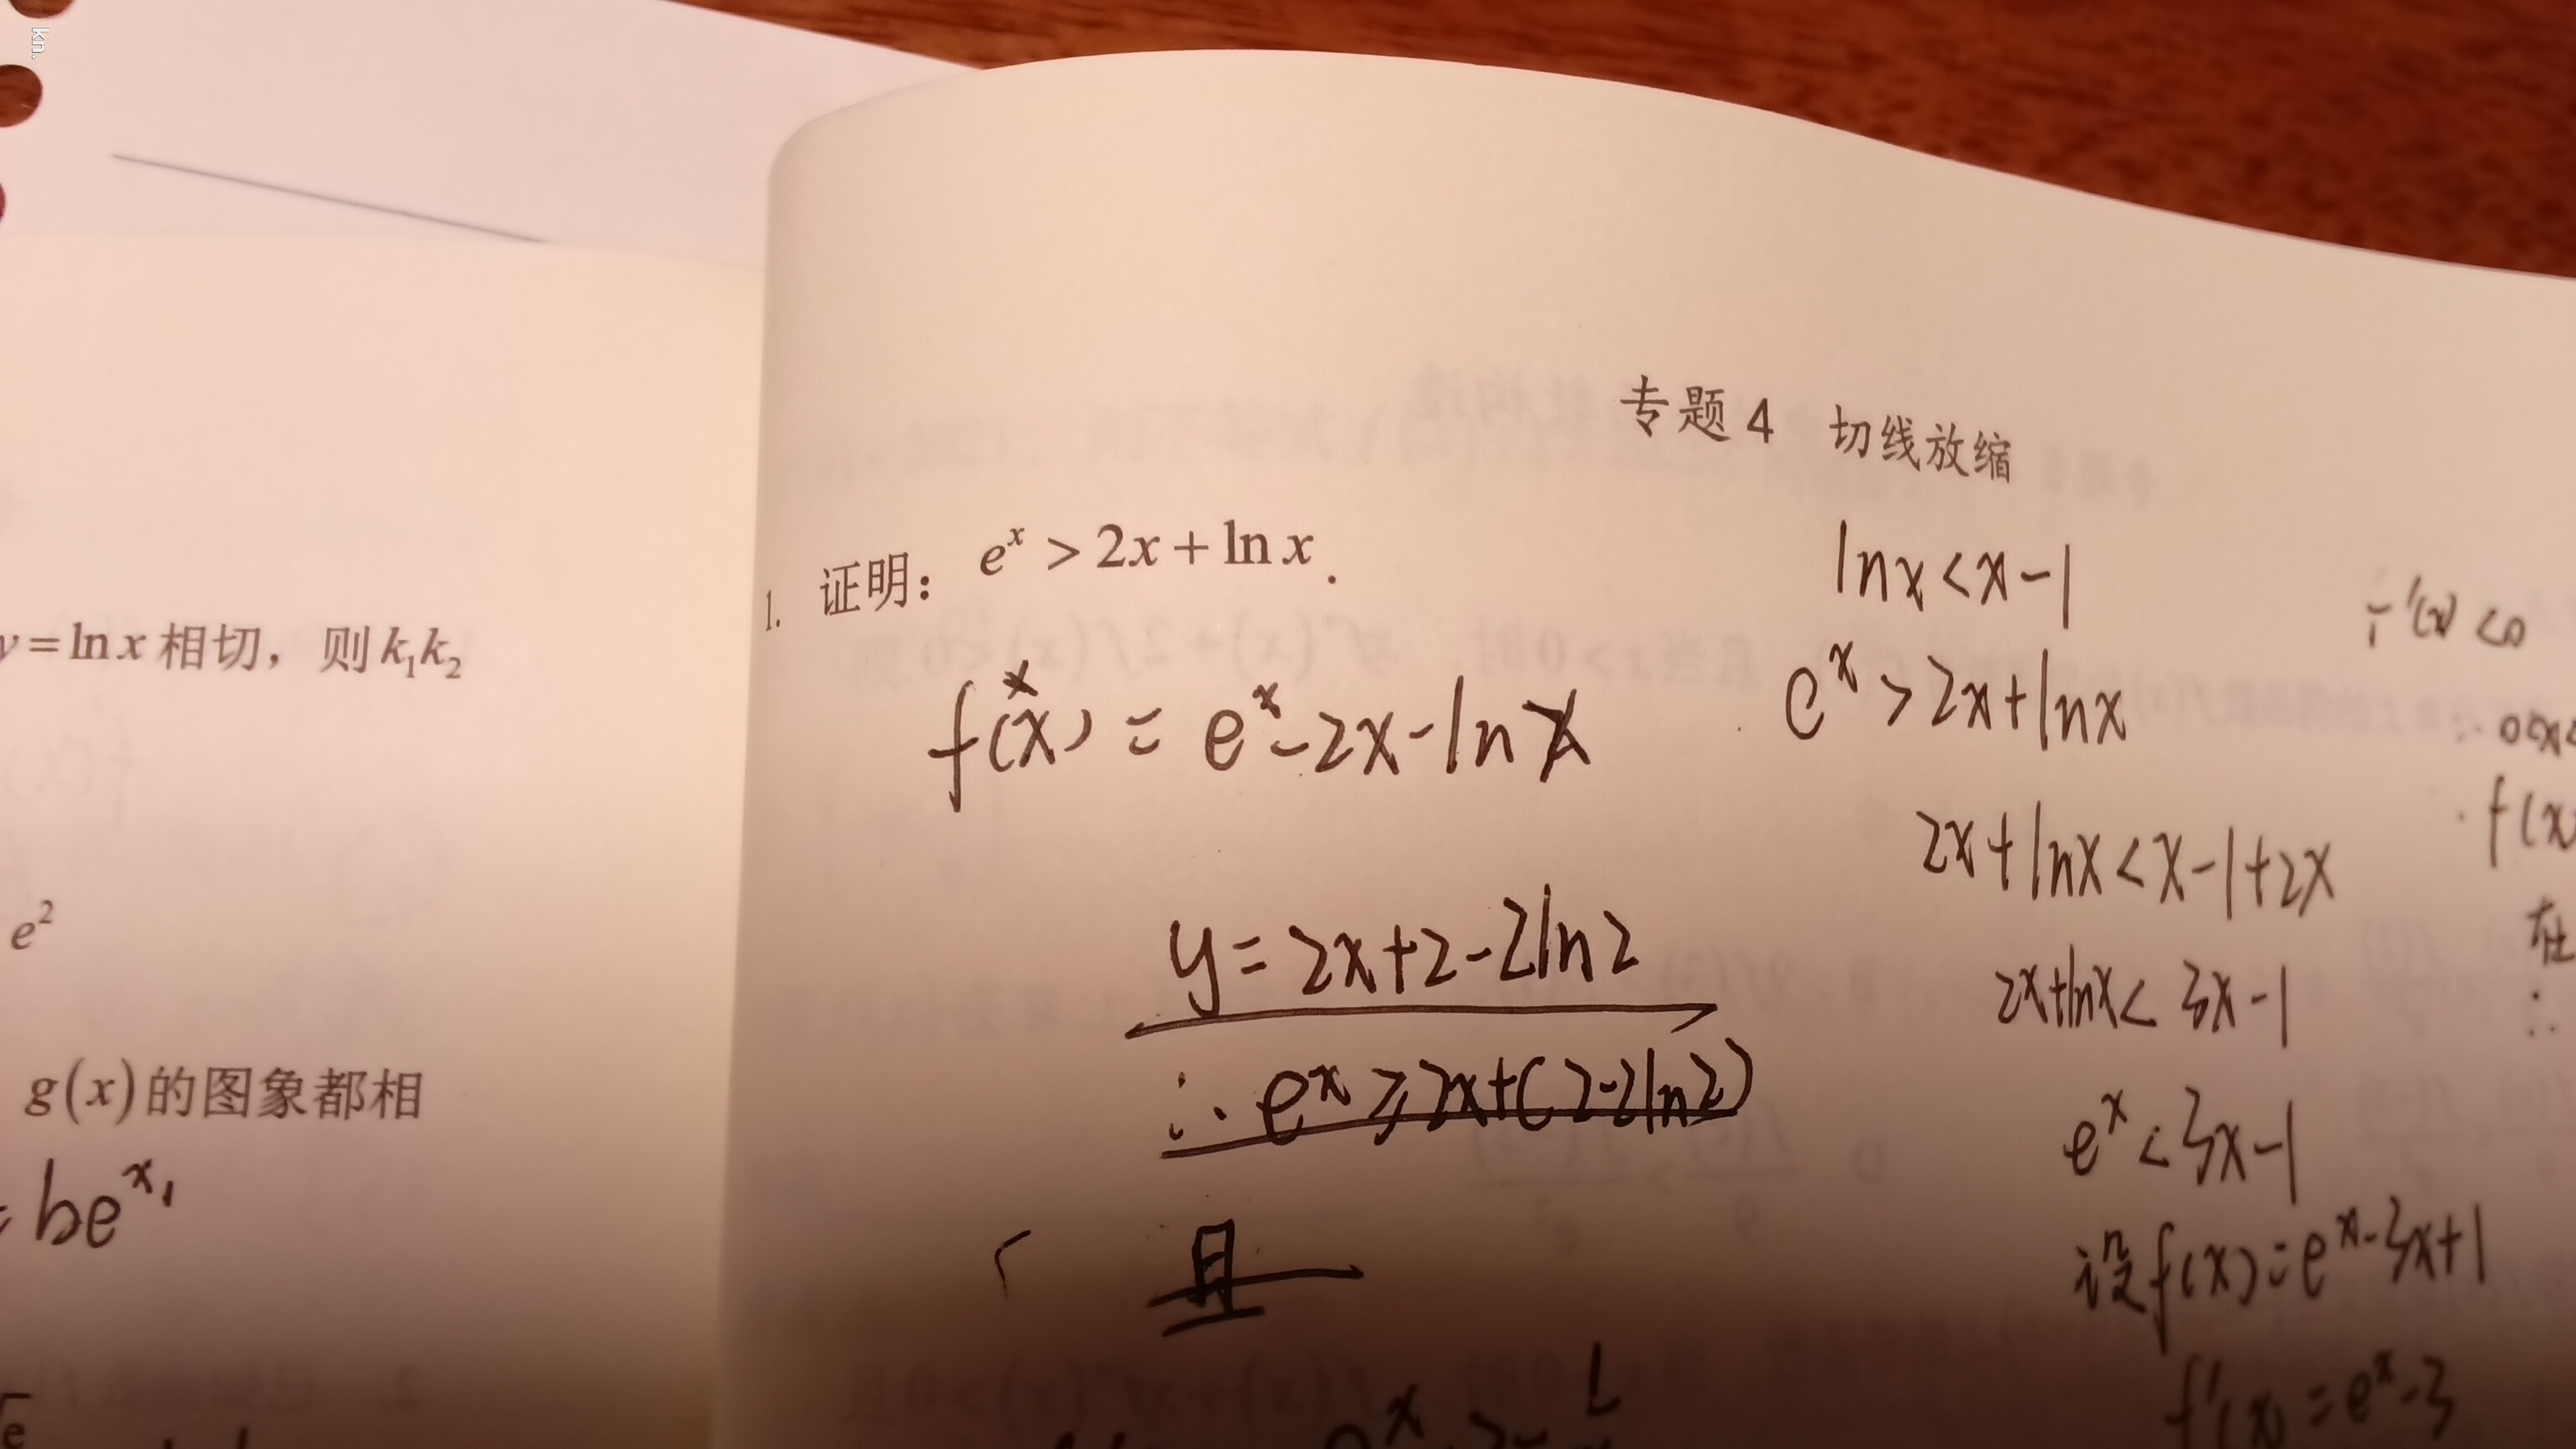 kn.
y = ln x 相切，则 k₁k₂
e²
g(x) 的图象都相
= be^x₁
专题 4 切线放缩
1. 证明： e^x > 2x + ln x .
f(x) = e^x - 2x - ln x
y = 2x + 2 - 2ln2
∴ e^x ≥ 2x + (2 - 2ln2)
且
ln x < x - 1
e^x > 2x + ln x
2x + ln x < x - 1 + 2x
2x + ln x < 3x - 1
e^x < 3x - 1
设 f(x) = e^x - 3x + 1
f'(x) = e^x - 3
f'(x) < 0
f(x)
在
∴